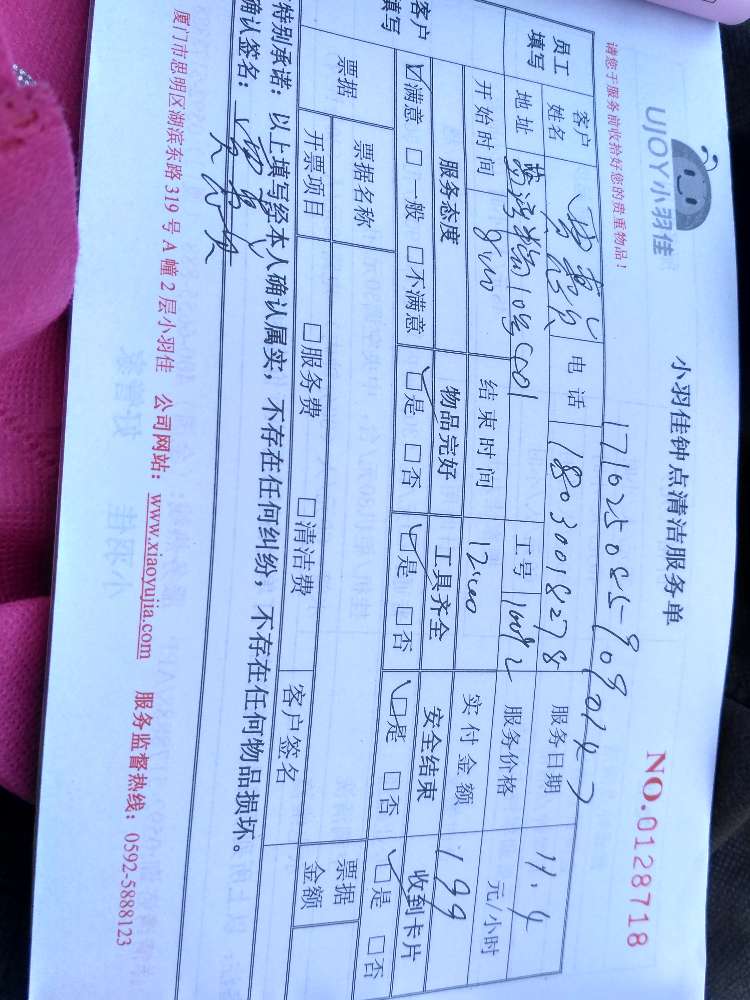 UJOY小羽佳
小羽佳钟点清洁服务单
NO.0128718
请您于服务前收拾好您的贵重物品！
17102508590901247
员工填写
客户姓名 电话 18030018278 服务日期 11.4
地址 10号601 工号 10092 服务价格 元/小时
开始时间 8:00 结束时间 12:00 实付金额 199
客户填写
服务态度 物品完好 工具齐全 安全结束 收到卡片
☑满意 □一般 □不满意 ☑是 □否 ☑是 □否 ☑是 □否 ☑是 □否
票据 票据名称 票据金额
开票项目 □服务费 □清洁费 客户签名
特别承诺：以上填写经本人确认属实，不存在任何纠纷，不存在任何物品损坏。
确认签名：
厦门市思明区湖滨东路 319 号 A 幢 2 层小羽佳 公司网站：www.xiaoyujia.com 服务监督热线：0592-5888123